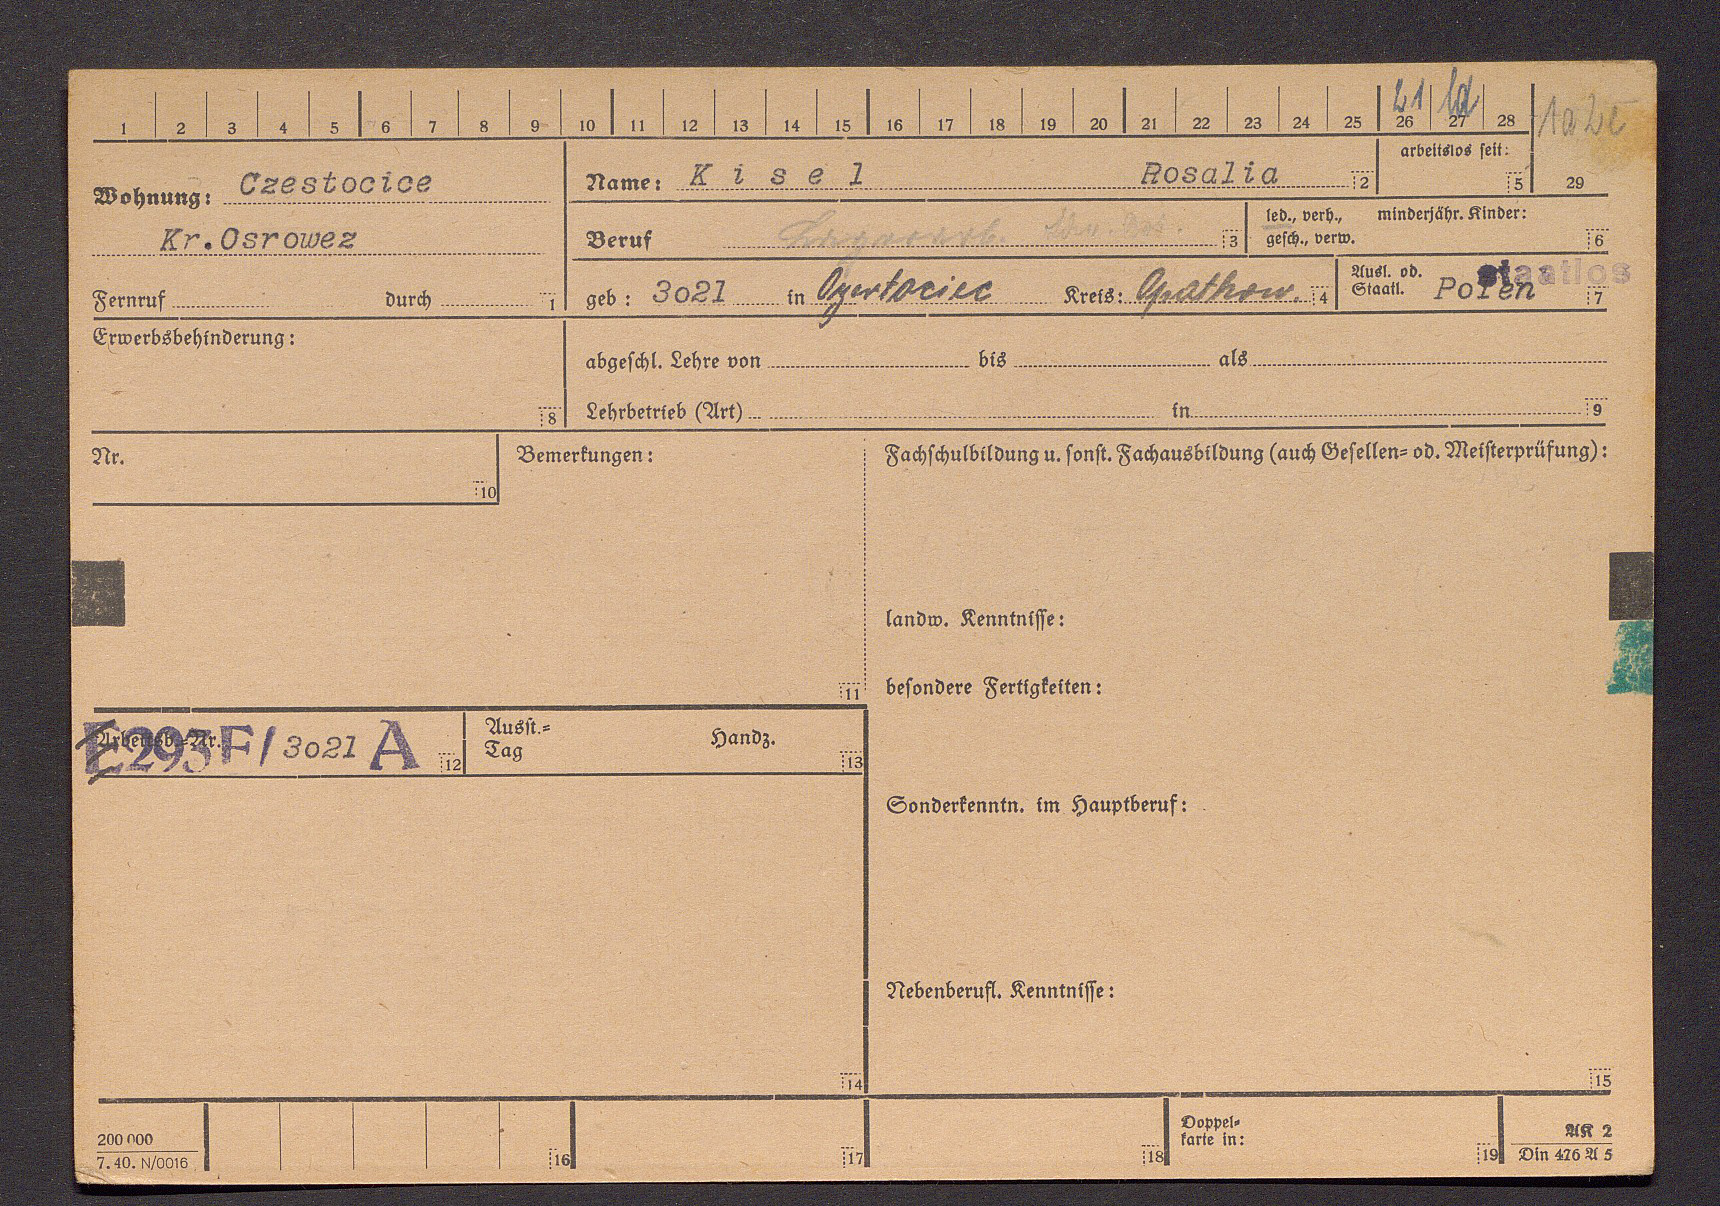 1 2 3 4 5 6 7 8 9 10 11 12 13 14 15 16 17 18 19 20 21 22 23 24 25 26 27 28
21 ld
1a2c
Wohnung: Czestocice
Kr.Osrowez
Fernruf durch 1
Name: Kisel Rosalia 2
arbeitslos seit:
5 29
Beruf 3
led., verh., minderjähr. Kinder:
gesch., verw. 6
geb: 3021 in Kreis: Opathow. 4
Ausl. od.
Staatl. Polen staatlos 7
Erwerbsbehinderung:
8
abgeschl. Lehre von bis als
Lehrbetrieb (Art) in 9
Nr.
10
Bemerkungen:
11
Fachschulbildung u. sonst. Fachausbildung (auch Gesellen= od. Meisterprüfung):
landw. Kenntnisse:
besondere Fertigkeiten:
Arbeitsb.=Nr.
E293F/3021 A 12
Ausst.=
Tag Handz. 13
Sonderkenntn. im Hauptberuf:
Nebenberufl. Kenntnisse:
14
15
200 000
7. 40. N/0016
16
17
18
Doppel=
karte in:
19
AK 2
Din 476 A 5